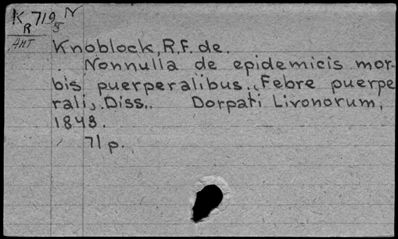 K 719 N
R 5
ANT
Knoblock, R.F. de.
Nonnulla de epidemicis mor-
bis puerperalibus., Febre puerpe
rali,. Diss.. Dorpati Livonorum,
1843.
71 p.